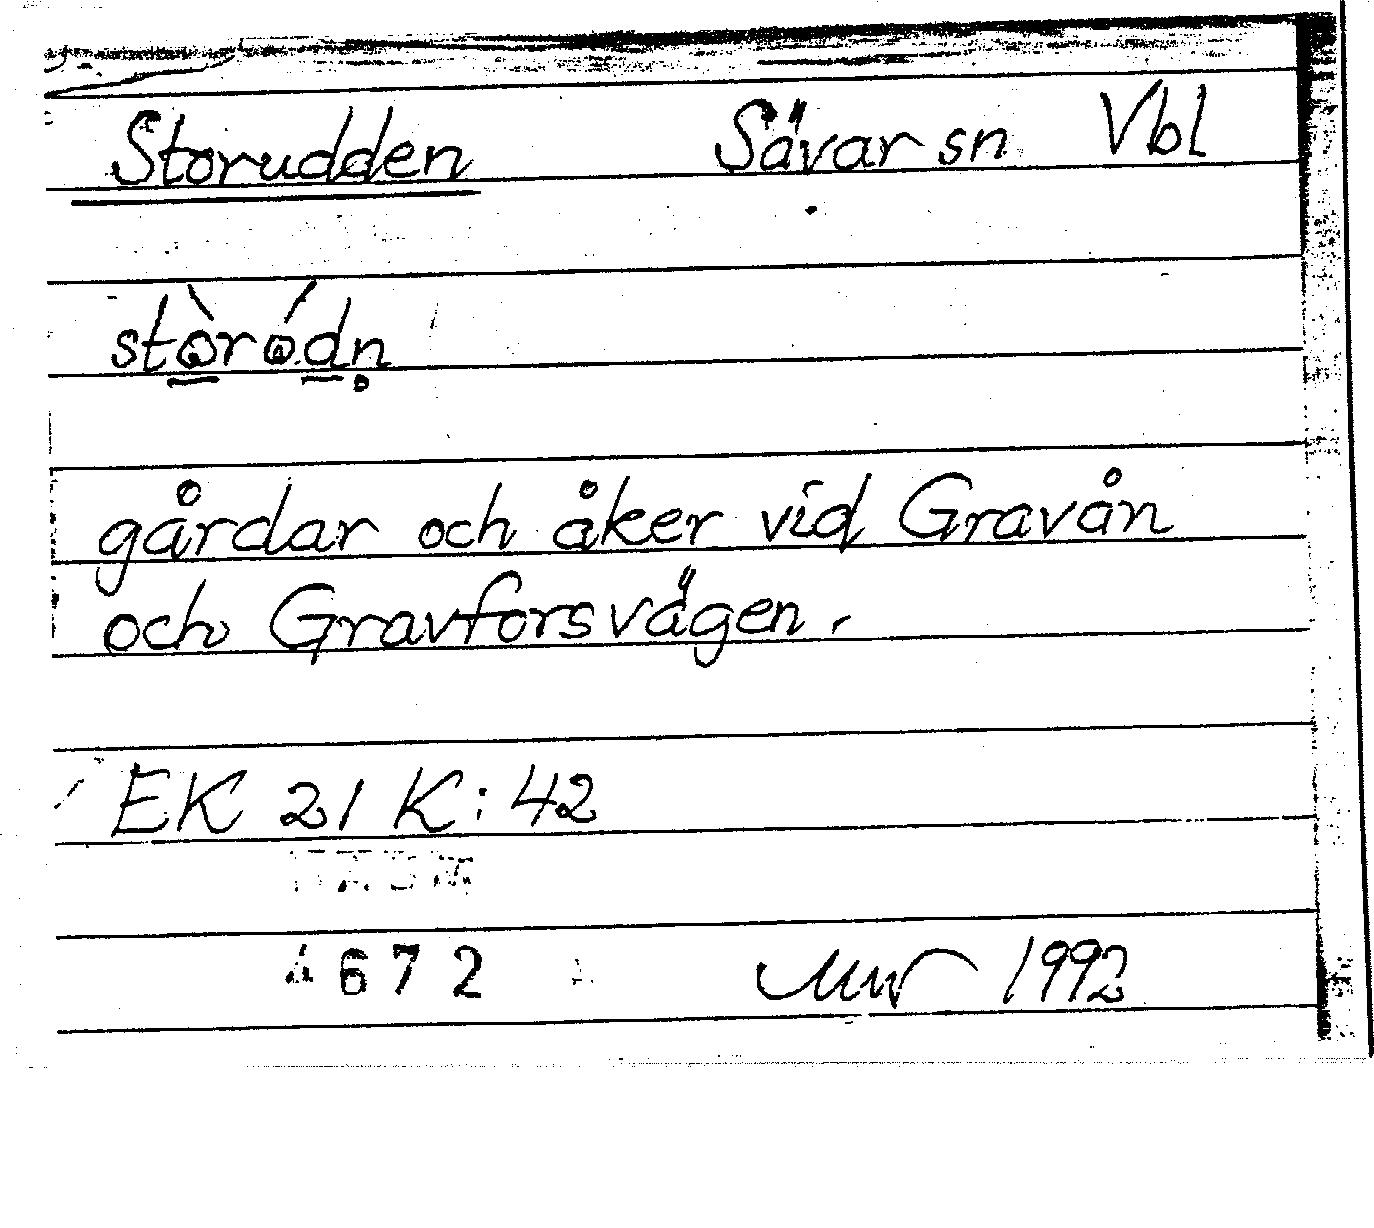 Storudden Sävar sn Vbl
gårdar och åker vid Gravån
och Gravforsvägen.
EK 21 K: 42
4672 1992